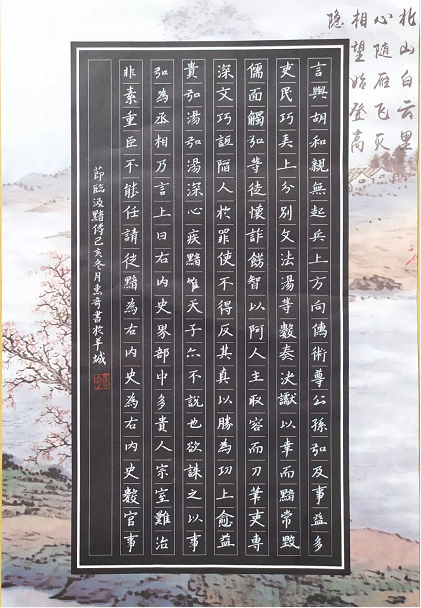 北山白云里
心随雁飞灭
相望始登高
隐
言與胡和親無起兵上方向儒術尊公孫弘及事益多
吏民巧弄上分別文法湯等數奏決讞以幸而黯常毀
儒面觸弘等徒懷詐飾智以阿人主取容而刀筆吏專
深文巧詆陷人於罪使不得反其真以勝為功上愈益
貴弘湯弘湯深心疾黯唯天子亦不說也欲誅之以事
弘為丞相乃言上曰右內史界部中多貴人宗室難治
非素重臣不能任請徙黯為右內史為右內史數官事
節臨汲黯傳己亥冬月惠奇書於羊城